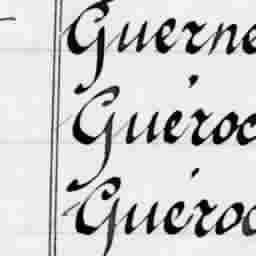 Guerne
Guéroc
Guéroc